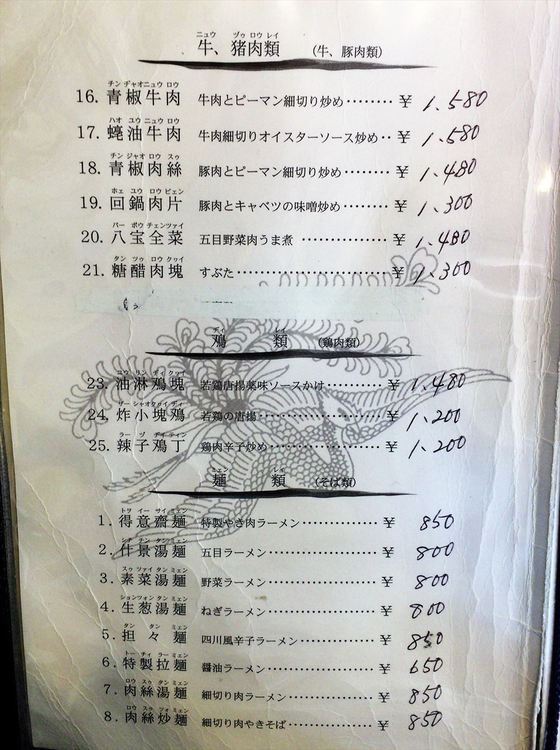 ニュウ ヅゥ ロウ レイ
牛、猪肉類 (牛、豚肉類)
チン ヂャオ ニュウ ロウ
16. 青椒牛肉 牛肉とピーマン細切り炒め‥‥‥‥ ¥ 1,580
ハオ ユウ ニュウ ロウ
17. 蠔油牛肉 牛肉細切りオイスターソース炒め‥ ¥ 1,580
チン ジャオ ロウ スゥ
18. 青椒肉絲 豚肉とピーマン細切り炒め‥‥‥‥ ¥ 1,480
ホェ ユウ ロウ ピェン
19. 回鍋肉片 豚肉とキャベツの味噌炒め‥‥‥‥ ¥ 1,300
パー ポウ チェンツァイ
20. 八宝全菜 五目野菜肉うま煮 ‥‥‥‥‥‥‥ ¥ 1,480
タン ツゥ ロウ クゥイ
21. 糖醋肉塊 すぶた‥‥‥‥‥‥‥‥‥‥‥‥‥ ¥ 1,300
ヂィ レイ
鶏類 (鶏肉類)
ユウ リン ヂィ クゥイ
23. 油淋鶏塊 若鶏唐揚薬味ソースかけ‥‥‥‥‥ ¥ 1,480
ザー シャオ クゥイ ヂィ
24. 炸小塊鶏 若鶏の唐揚‥‥‥‥‥‥‥‥‥‥‥ ¥ 1,200
ラー ヅ ヂィ ティン
25. 辣子鶏丁 鶏肉辛子炒め‥‥‥‥‥‥‥‥‥‥ ¥ 1,200
ミェン レイ
麺類 (そば類)
トゥ イー サイ ミェン
1. 得意齋麺 特製やき肉ラーメン‥‥‥‥‥‥ ¥ 850
2. 什景湯麺 五目ラーメン‥‥‥‥‥‥‥‥‥ ¥ 800
スゥ ツァイ タン ミェン
3. 素菜湯麺 野菜ラーメン‥‥‥‥‥‥‥‥‥ ¥ 800
ションツォン タン ミェン
4. 生葱湯麺 ねぎラーメン‥‥‥‥‥‥‥‥‥ ¥ 800
タン タン ミェン
5. 担々麺 四川風辛子ラーメン‥‥‥‥‥‥ ¥ 850
トー チィ ラー ミェン
6. 特製拉麺 醤油ラーメン‥‥‥‥‥‥‥‥‥ ¥ 650
ロウ スゥ タン ミェン
7. 肉絲湯麺 細切り肉ラーメン‥‥‥‥‥‥‥ ¥ 850
ロウ スゥ ツォ ミェン
8. 肉絲炒麺 細切り肉やきそば‥‥‥‥‥‥‥ ¥ 850